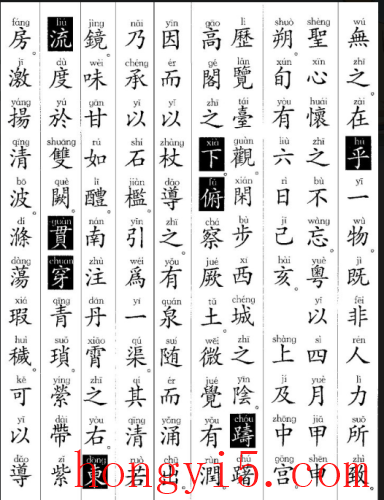 無之。在乎一物。既非人力所致。
聖心懷之不忘。粵以四月甲申
朔旬有六日己亥。上及中宮
歷覽臺觀。閑步西城之陰。躊躇
高閣之下。俯察厥土。微覺有潤。
因而以杖導之。有泉隨而涌出。
乃承以石檻。引爲一渠。其清若
鏡。味甘如醴。南注丹霄之右。東
流度於雙闕。貫穿青瑣。縈帶紫
房。激揚清波。滌蕩瑕穢。可以導
hongyi5.com